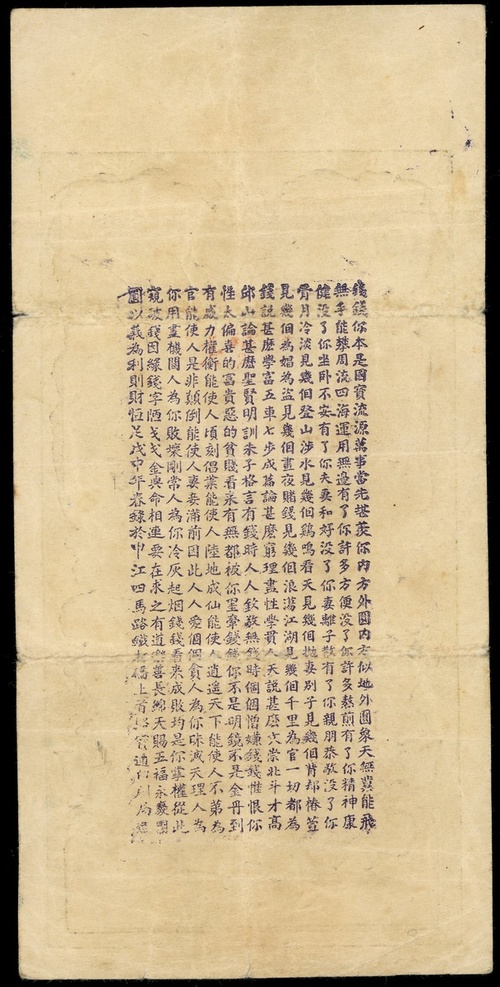 錢錢你本是國寶流源萬事當先堪羨你內方外圓內方似地外圓象天無翼能飛
無手能攀周流四海運用無邊有了你許多方便沒了你許多熬煎有了你精神康
健沒了你坐卧不安有了你夫妻和好沒了你妻離子散有了你親朋恭敬沒了你
骨月冷淡見幾個登山涉水見幾個鷄鳴看天見幾個抛妻別子見幾個背却椿萱
見幾個為娼為盜見幾個晝夜賭錢見幾個浪蕩江湖見幾個千里為官一切都為
錢說甚麽學富五車七步成篇論甚麽窮理盡性學貫人天說甚麽文崇北斗才高
邱山論甚麽聖賢明訓朱子格言有錢時人人欽敬無錢時個個憎嫌錢錢惟恨你
性太偏喜的富貴惡的貧賤看來有無都被你牽錢錢你不是明鏡不是金丹到
有威力權衡能使人頃刻倡業能使人陸地成仙能使人逍遥天下能使人不弟為
官能使人是非顛倒能使人妻妾滿前因此人人愛個個貪人為你昧滅天理人為
你用盡機關人為你敗柴剛常人為你冷灰起烟錢錢看來成敗均是你掌權從此
窺破錢因緣錢字陋戈戈金與命相連要在求之有道樂善長綿天賜五福永幾團
圓以義為利則財恒足戊申年春錄於申江四馬路橋上首石印局